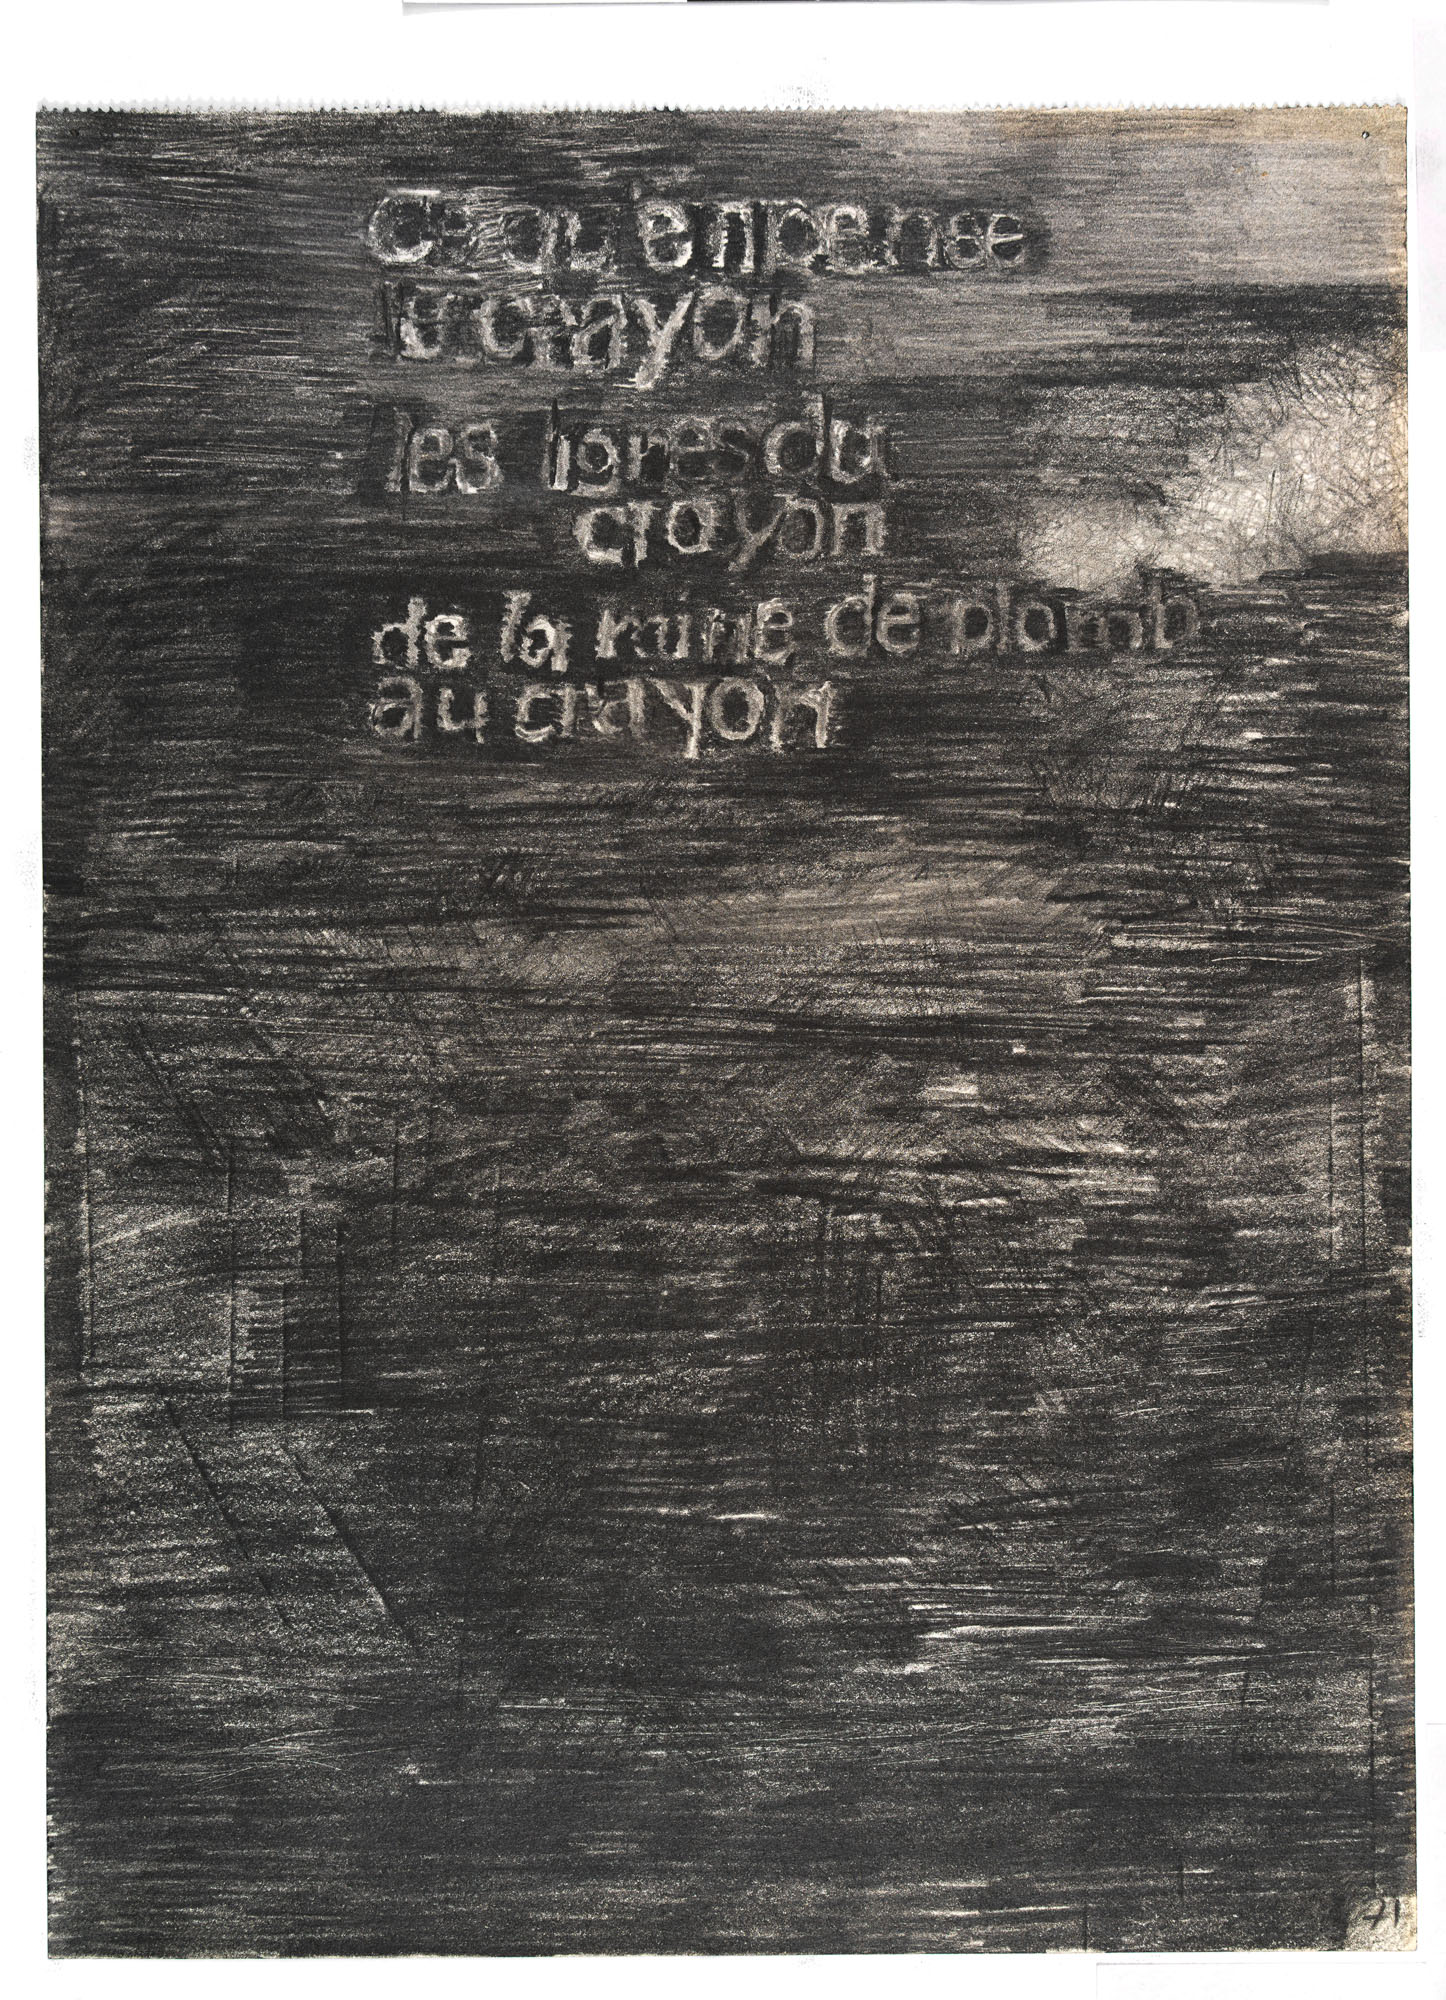 Ce qu'en pense
le crayon
les lignes du
crayon
de la mine de plomb
au crayon
71